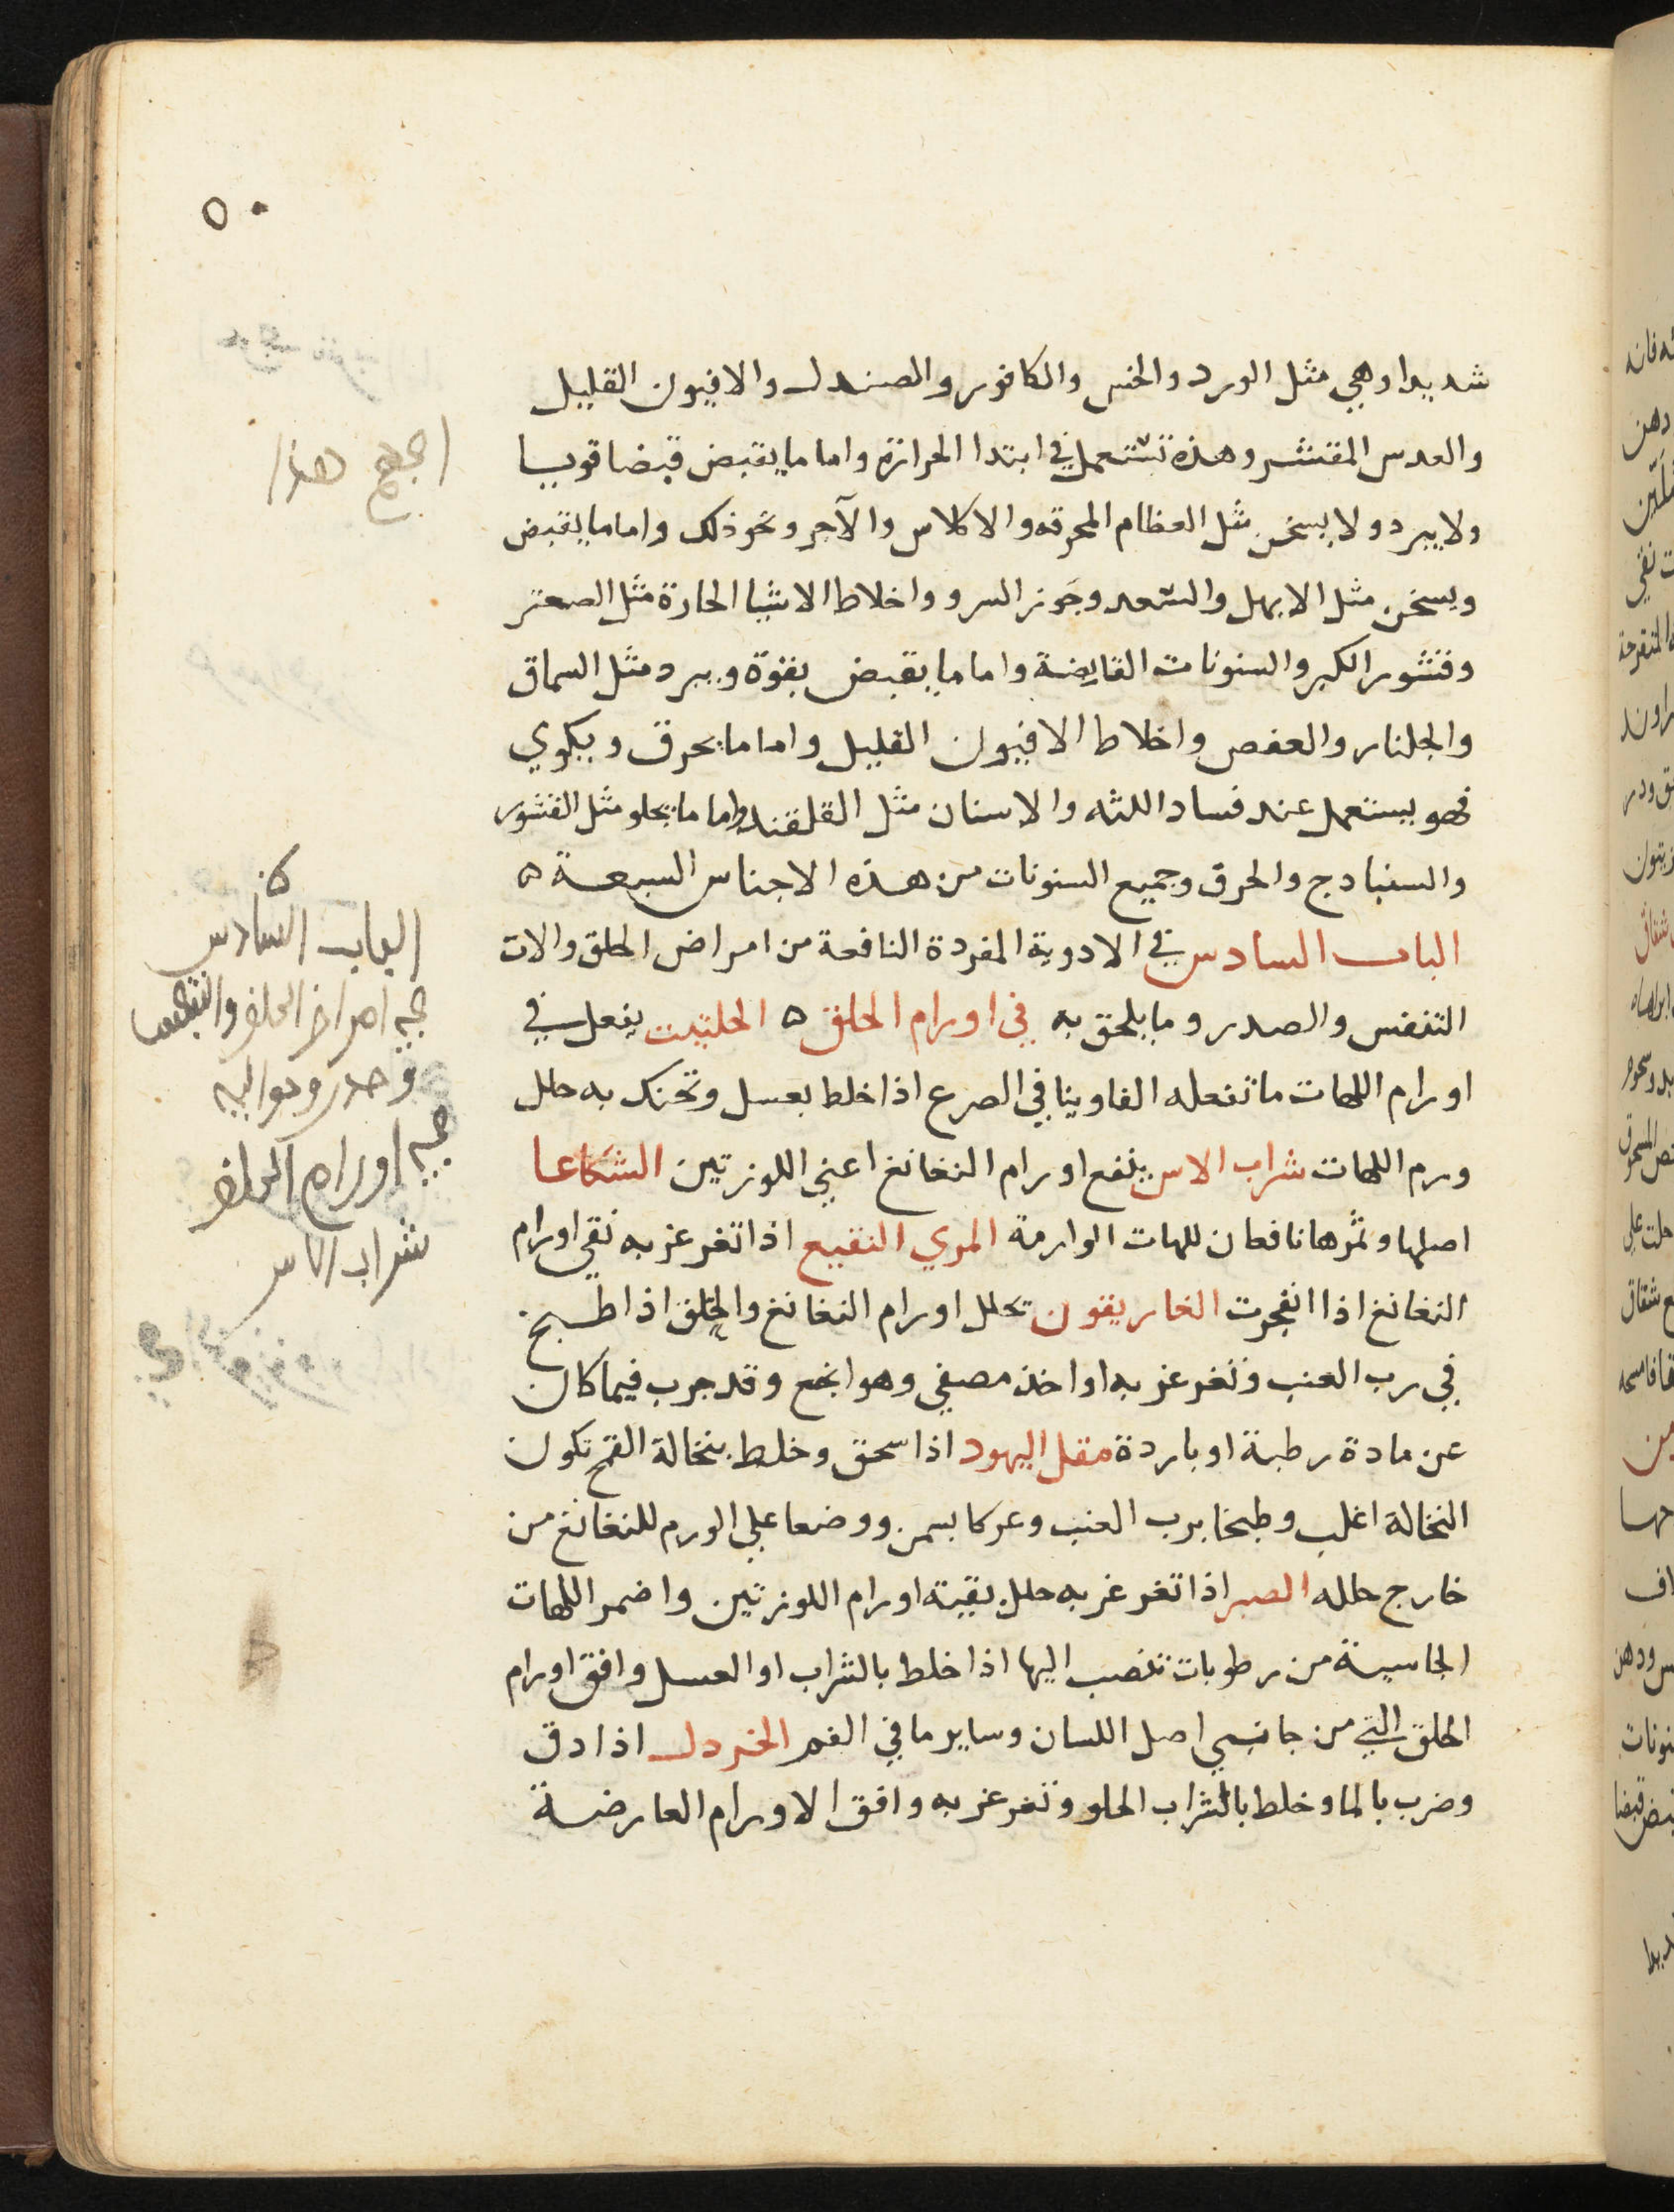 ٥٠
شديدا وهي مثل الورد والخس والكافور والصندل والافيون القليل
والعدس المقشر وهذه تستعمل في ابتدا الحرارة واما ما يقبض قبضا قويا
ولا يبرد ولا يسخن مثل العظام المحرقه والاكلاس والآجر ونحو ذلك واما ما يقبض
ويسخن مثل الابهل والسّعد وجَوز السرو واخلاط الاشيا الحارة مثل الصعتر
وقشور الكبر والسنونات القابضة واما ما يقبض بقوة ويبرد مثل السماق
والجلنار والعفص واخلاط الافيون القليل واما ما يحرق ويكوي
فهو يستعمل عند فساد اللثه والاسنان مثل القلقند واما ما يجلو مثل القشور
والسنبادج والحرق وجميع السنونات من هذه الاجناس السبعة ه
الباب السادس في الادوية المفردة النافعة من امراض الحلق والات
التنفس والصدر وما يلحق به في اورام الحلق ه الحلتيت يفعل في
اورام اللهات ما تفعله الفاوينا في الصرع اذا خلط بعسل وتحنك به حلل
ورم اللهات شراب الاس ينفع اورام النغانغ اعني اللوزتين الشكاعا
اصلها وثمرها نافعان للهات الوارمة المري النقيع اذا تغرغر به نقي اورام
النغانغ اذا انفجرت الغاريقون تحلل اورام النغانغ والحلق اذا طبخ
في رب العنب وتغرغر به او اخذ مصفي وهو انجع وقد جرب فيما كان
عن مادة رطبة او باردة مقل اليهود اذا سحق وخلط بنخالة القمح تكون
النخالة اغلب وطبخا برب العنب وعركا بسمن ووضعا علي الورم للنغانغ من
خارج حلله الصبر اذا تغرغر به حلل بقية اورام اللوزتين واضمر اللهات
الجاسية من رطوبات تنصب اليها اذا خلط بالشراب او العسل وافق اورام
الحلق التي من جانبي اصل اللسان وساير ما في الفم الخردل اذا دق
وضرب بالما وخلط بالشراب الحلو وتغرغر به وافق الاورام العارضة
هذا
الباب السادس
في امراض الحلق والتنفس
وصدر وحواليه
في اورام الحلق
شراب الاس